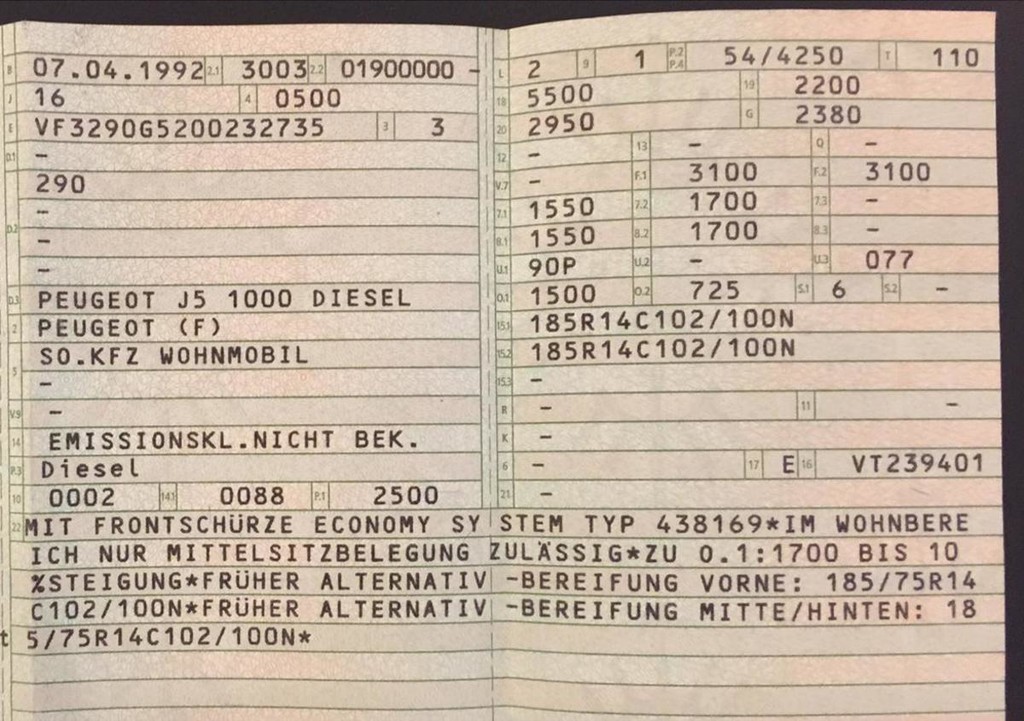 B 07.04.1992 2.1 3003 2.2 01900000 -
J 16 4 0500
E VF3290G5200232735 3 3
D.1 -
290
-
D.2 -
-
D.3 PEUGEOT J5 1000 DIESEL
2 PEUGEOT (F)
SO.KFZ WOHNMOBIL
5 -
V.9 -
14 EMISSIONSKL.NICHT BEK.
P.3 Diesel
10 0002 14.1 0088 P.1 2500
L 2 9 1 P.2 P.4 54/4250 T 110
18 5500 19 2200
20 2950 G 2380
12 - 13 - Q -
V.7 - F.1 3100 F.2 3100
7.1 1550 7.2 1700 7.3 -
8.1 1550 8.2 1700 8.3 -
U.1 90P U.2 - U.3 077
O.1 1500 O.2 725 S.1 6 S.2 -
15.1 185R14C102/100N
15.2 185R14C102/100N
15.3 -
R - 11 -
K -
6 - 17 E 16 VT239401
21 -
22 MIT FRONTSCHÜRZE ECONOMY SYSTEM TYP 438169*IM WOHNBERE
ICH NUR MITTELSITZBELEGUNG ZULÄSSIG*ZU O.1:1700 BIS 10
%STEIGUNG*FRÜHER ALTERNATIV-BEREIFUNG VORNE: 185/75R14
C102/100N*FRÜHER ALTERNATIV-BEREIFUNG MITTE/HINTEN: 18
t 5/75R14C102/100N*